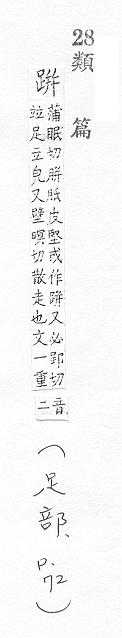 28
類篇
跰
蒲眠切胼胝皮堅或作跰又必郢切
竝足立皃又壁暝切散走也文一重
音二
（足部、P.72）